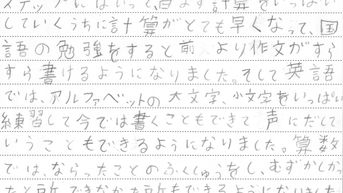 ステップにはいって、まず計算をいっぱい
していくうちに計算がとても早くなって、国
語の勉強をすると前より作文がすら
すら書けるようになりました。そして英語
では、アルファベットの大文字、小文字をいっぱい
練習して今では書くこともできて声にだして
いうこともできるようになりました。算数
では、ならったことのふくしゅうをし、むずかしか